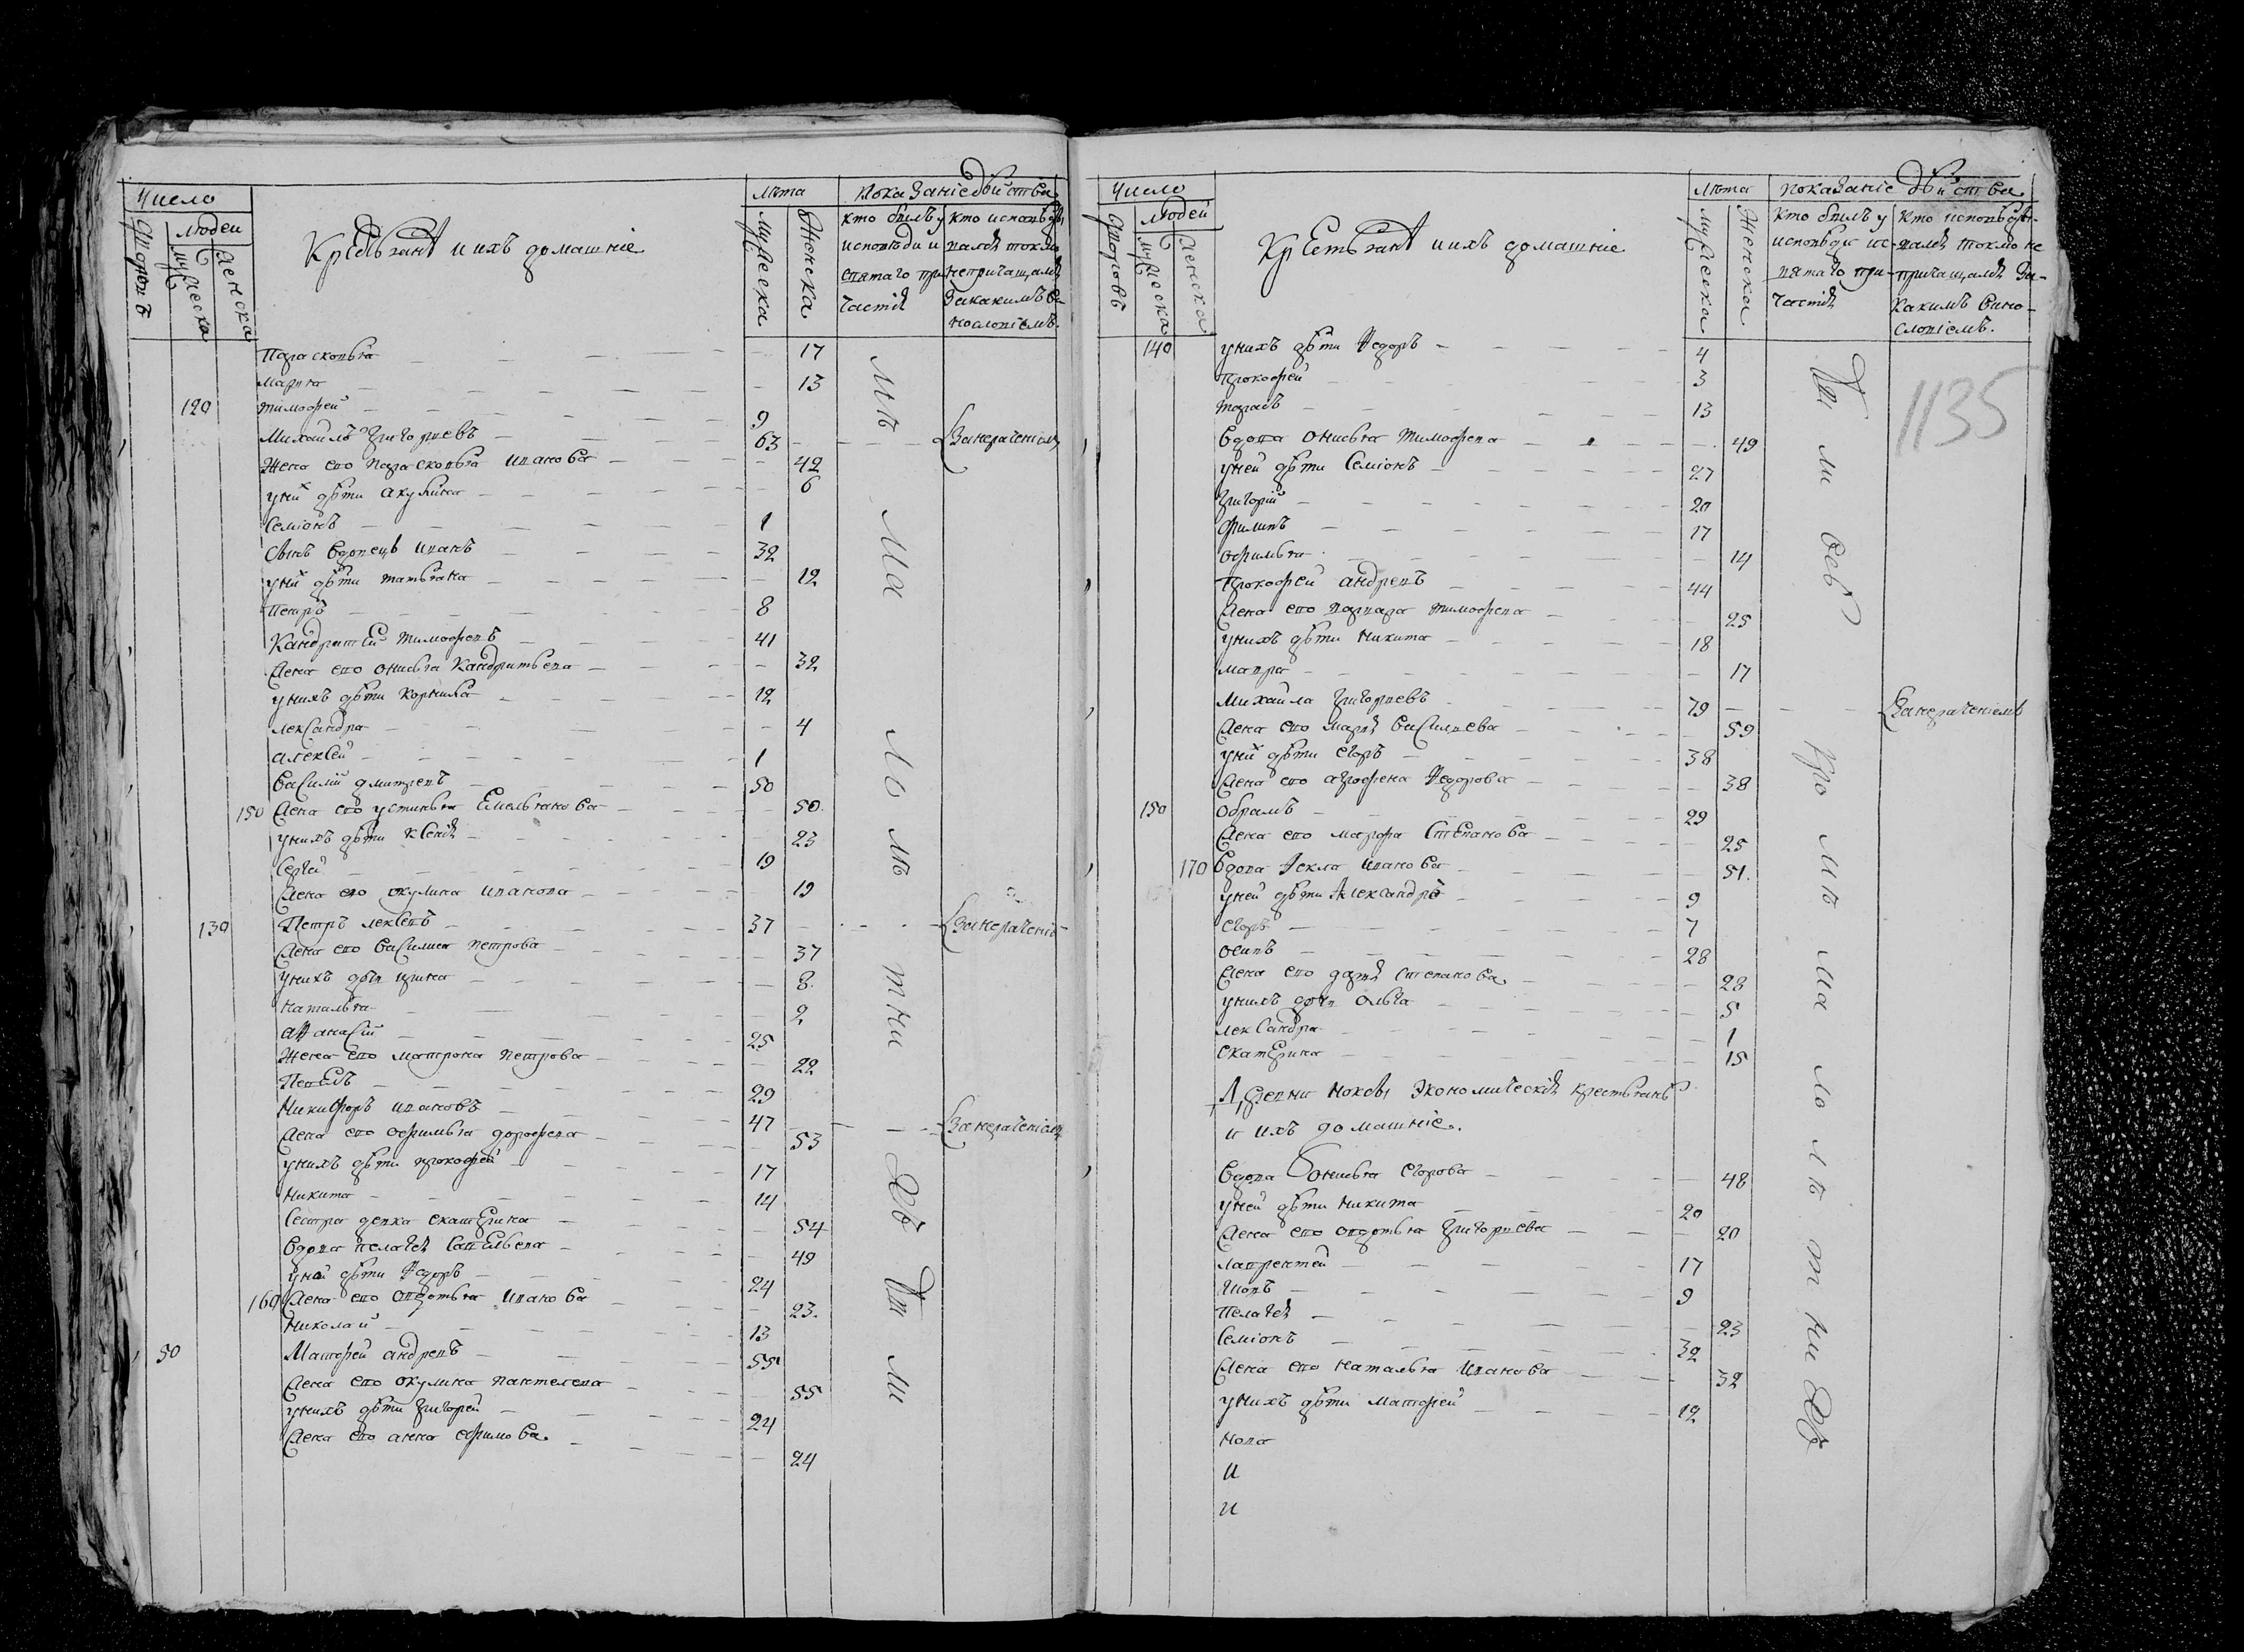 Число
Дворовъ
Людей
Мужеска
Женска
Крестьянѧ и ихъ домашніе
Лѣта
Мужеска
Женска
Показаніе дѣйства
кто былъ у исповѣди и святаго причастіѧ
кто исповѣдывалсѧ токмо не причащалсѧ за какимъ винословіемъ.
Парасковья 17
Марѳа 13
120 Тимофей 9
Михайлъ Григорьевъ 63 За нераченіем
Жена его Парасковья Иванова 42
у ний дѣти Акулина 6
Семіонъ 1
Сынъ вдовецъ Иванъ 32
у ний дѣти Татьяна 12
Петръ 8
Кандратей Тимофевъ 41
Жена его Онисья Кандратьева 32
у нихъ дѣти Корнила 12
лександра 4
алексей 1
Василий Дмитревъ 50
150 Жена его устинья Емельянова 50.
у нихъ дѣти Ксеніѧ 23
Сергѣй 19
Жена его окулина Иванова 19
130 Петръ лексевъ 37 За нераченіе
Жена его Василиса Петрова 37
у нихъ дѣти ирина 8.
наталья 2
аѳанасій 25
Жена его матрона Петрова 22
Павелъ 29
Никифоръ ивановъ 47 За нераченіем
Жена его офимья дорофева 53
у нихъ дѣти прокофей 17
Никита 14
Сестра девка екатерина 54
Вдова пелагеѧ Савельева 49
у ней дѣти Ѳедоръ 24
160 Жена его авдотья Иванова 23.
Николай 13
50 Матфей андревъ 55
Жена его окулина пантелева 55
у нихъ дѣти григорей 24
Жена его анна ефимова 24
мѣ ма ло лѣ тни хъ дѣт ми
Число
Дворовъ
Людей
Мужеска
Женска
Крестьянѧ и ихъ домашніе
Лѣта
Мужеска
Женска
Показаніе дѣйства
кто былъ у исповѣди и святаго причастіѧ
кто исповѣдывалсѧ токмо не причащалсѧ за какимъ винословіемъ.
1135
140 у нихъ дѣти Ѳедоръ 4
Прокофей 3
тарасъ 13
Вдова онисья тимофева 49
у ней дѣти Семіонъ 27
Григорій 20
Филипъ 17
офимья 14
Прокофей андревъ 44
Жена его варвара тимофева 25
у нихъ дѣти никита 18
мавра 17
Михайла григорьевъ 79 За нераченіемъ
Жена его марьѧ василиева 59
у ний дѣти егоръ 38
Жена его аграфена Ѳедорова 38
150 обрамъ 29
Жена его марфа Степанова 25
170 Вдова Ѳекла Иванова 51.
у ней дѣти александръ 9
егоръ 7
осипъ 28
Жена его дарьѧ степанова 28
у нихъ дочь ольга 5
лександра 1
екатерина 15
Деревни Нокова Экономическіѧ крестьянѣ
и ихъ домашніе.
Вдова онисья егорова 48
у ней дѣти никита 20
Жена его овдотья григорьева 20
лаврентей 17
Иовъ 9
Пелагеѧ 23
Семіонъ 32
Жена его наталья Иванова 32
у нихъ дѣти матфей 12
нова
и
и
дѣт ми всѣ кро мѣ ма ло лѣ т ни хъ